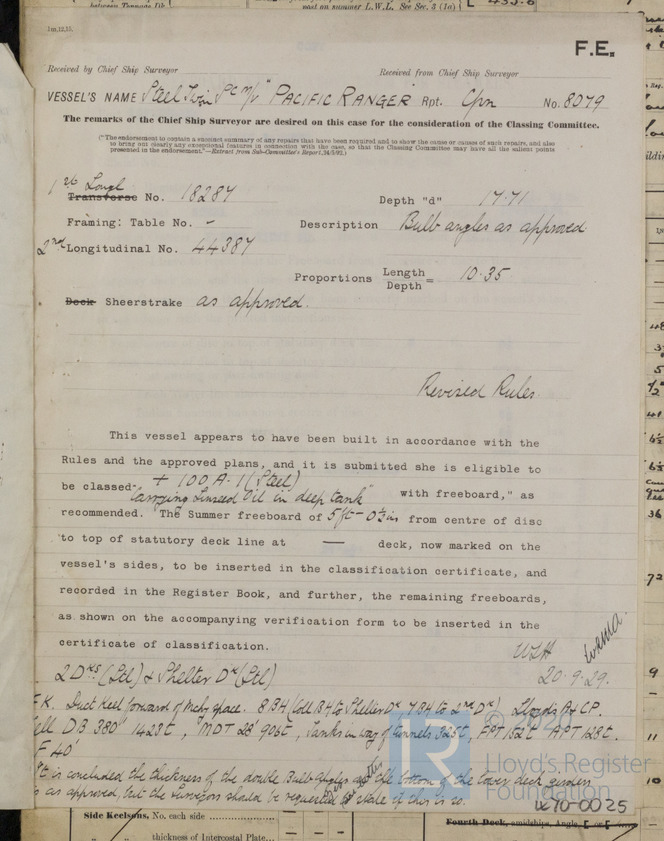 between Tonnage Dk.
not on summer L.W.L. See Sec. 3 (1a)
1m,12,15.
F.E.
Received by Chief Ship Surveyor
Received from Chief Ship Surveyor
VESSEL'S NAME Steel Twin Sc M/V "PACIFIC RANGER" Rpt. Cpn No. 8079
The remarks of the Chief Ship Surveyor are desired on this case for the consideration of the Classing Committee.
("The endorsement to contain a succinct summary of any repairs that have been required and to show the cause or causes of such repairs, and also
to bring out clearly any exceptional features in connection with the case, so that the Classing Committee may have all the salient points
presented in the endorsement."—Extract from Sub-Committee's Report, 24/5/92.)
1st Longl
Transverse No. 18284 Depth "d" 17.71
Framing: Table No. - Description Bulb angles as approved
2nd Longitudinal No. 44384
Proportions Length / Depth = 10.35
Deck Sheerstrake as approved.
Revised Rules.
This vessel appears to have been built in accordance with the
Rules and the approved plans, and it is submitted she is eligible to
be classed + 100 A.1 (Steel)
"Carrying Linseed Oil in deep tank" with freeboard," as
recommended. The Summer freeboard of 5 ft - 0½ ins from centre of disc
to top of statutory deck line at — deck, now marked on the
vessel's sides, to be inserted in the classification certificate, and
recorded in the Register Book, and further, the remaining freeboards,
as shown on the accompanying verification form to be inserted in the
certificate of classification.
20.9.29.
2 Dks (Stl) & Shelter Dk (Stl)
F.K. Duct keel forward of Mchy space. 8 BH (Coll BH to Shelter Dk 7 BH to 2nd Dk) Lloyds A & CP.
Cell DB 380' 1423t, MDT 28' 906t, Tanks in way of tunnels 325t, FPT 152t APT 128t.
F 40'
It is concluded the thickness of the double Bulb Angles at the bottom of the lower deck girders
is as approved, but the Surveyors should be requested to state if this is so.
© 2020
Lloyd's Register
Foundation
W170-0025
Side Keelsons, No. each side
thickness of Intercostal Plate...
Fourth Deck, amidships, Angle, [ or [